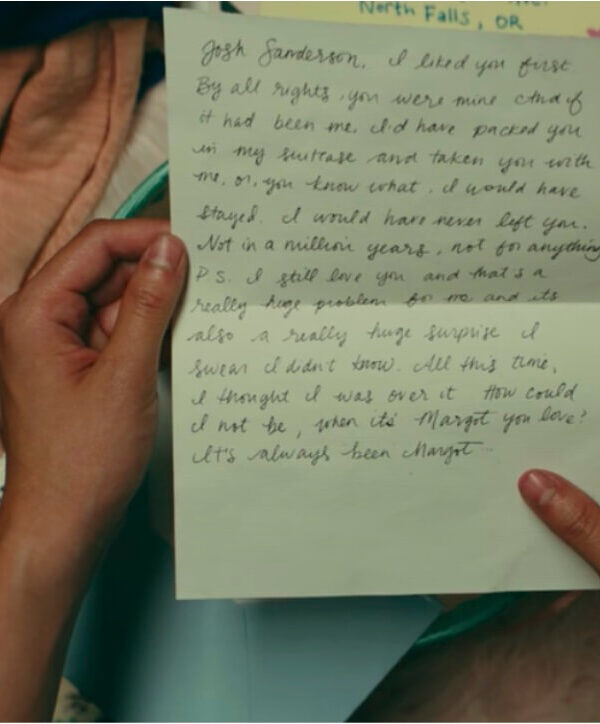 North Falls, OR
Josh Sanderson, I liked you first.
By all rights, you were mine. And if
it had been me, I'd have packed you
in my suitcase and taken you with
me, or, you know what, I would have
stayed. I would have never left you.
Not in a million years, not for anything
P.S. I still love you and that's a
really huge problem for me and its
also a really huge surprise I
swear I didn't know. All this time,
I thought I was over it How could
I not be, when its Margot you love?
It's always been Margot